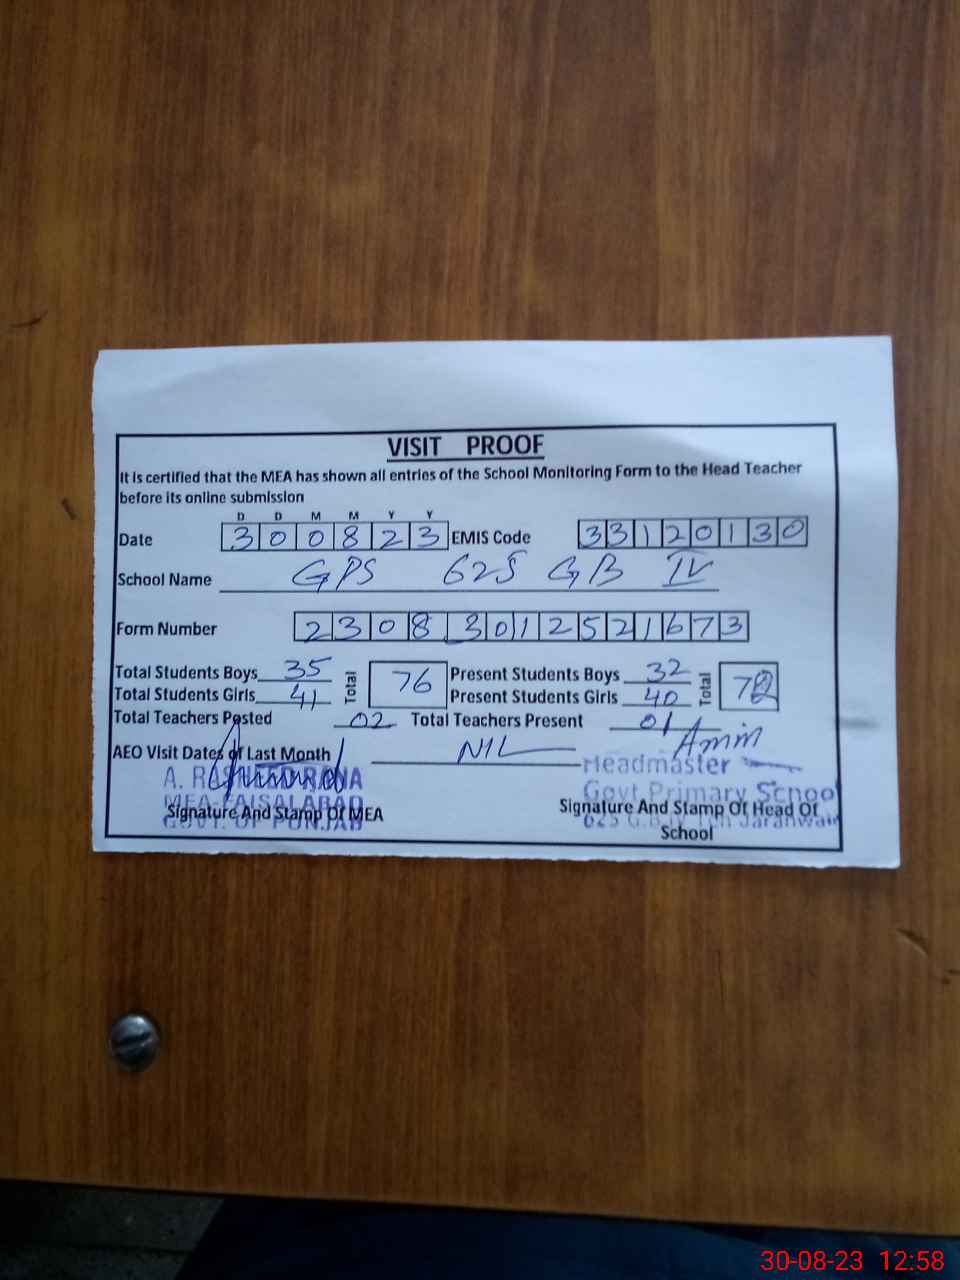 VISIT PROOF
It is certified that the MEA has shown all entries of the School Monitoring Form to the Head Teacher
before its online submission
D D M M Y Y
Date 3 0 0 8 2 3 EMIS Code 3 3 1 2 0 1 3 0
School Name GPS 625 GB IV
Form Number 2 3 0 8 3 0 1 2 5 2 1 6 7 3
Total Students Boys 35 Total 76 Present Students Boys 32 Total 72
Total Students Girls 41 Present Students Girls 40
Total Teachers Posted 02 Total Teachers Present 01
AEO Visit Dates of Last Month NIL Amin
A. RASHEED RANA Headmaster
MEA-FAISALABAD Govt Primary School
Signature And Stamp Of MEA Signature And Stamp Of Head Of
GOVT. OF PUNJAB 625 G.B IV Teh Jaranwala
School
30-08-23 12:58